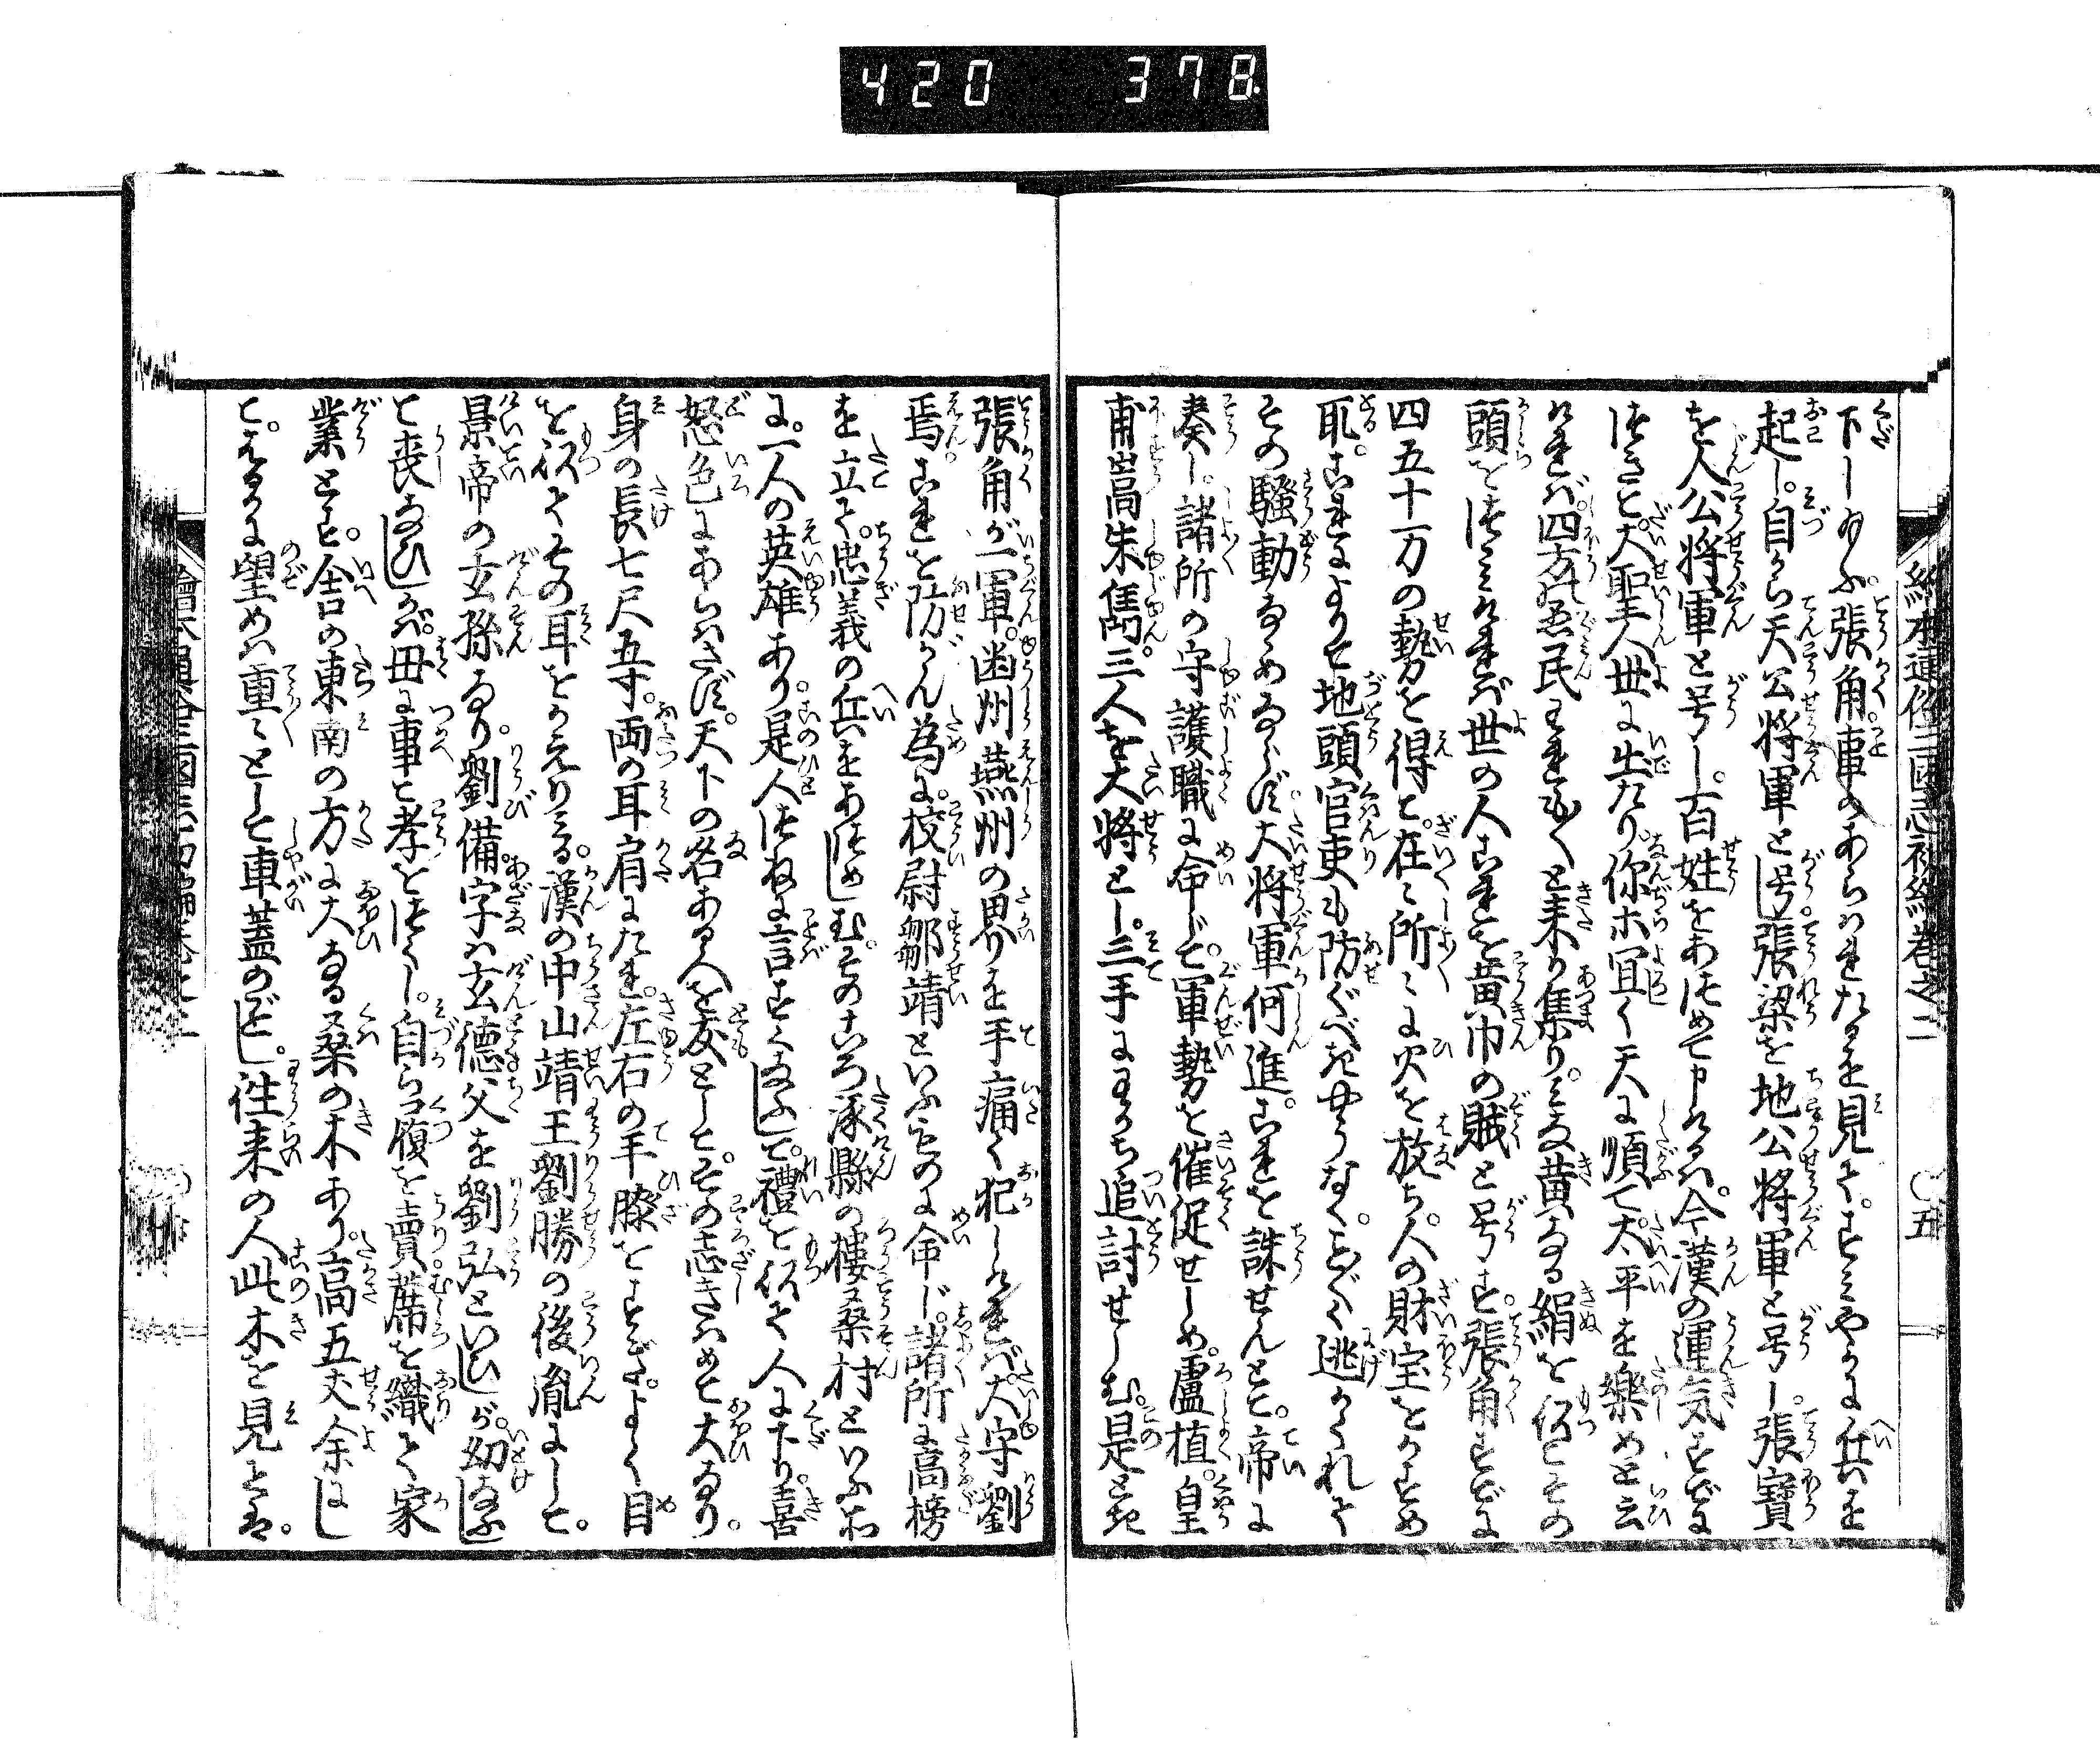 420 378
繪本通俗三國志初編巻之一 〇五
下し給ふ。張角事のあらはれたるを見て。すみやかに兵を
起し。自から天公将軍と号し。張梁を地公将軍と号し。張寶
を人公将軍と号し。百姓をあつめて申けるハ。今漢の運気すでに
つきて。大聖人世に出たり。你ホ宜く天に順て。太平を楽めと云
ければ。四方の愚民われもわれもと来り集り。みな黄なる絹を似てその
頭をつゝみければ。世の人これを黄巾の賊と号す。張角すでに
四五十万の勢を得て。在々所々に火を放ち。人の財宝をかすめ
取。これによりて地頭官吏も防ぐべきやうなく。ことごとく逃かくれて
その騒動なゝめならず。大将軍何進。これを誅せんとて。帝に
奏し。諸所の守護職に命じて。軍勢を催促せしめ。盧植。皇
甫嵩朱雋。三人を大将とし。三手にわかち追討せしむ。是とき
張角が一軍。幽州燕州の界を手痛く犯しければ。太守劉
焉。これを防がん為に。校尉鄒靖といふものに命じ。諸所に高榜
を立て。忠義の兵をあつめしむ。そのころ涿縣の楼桑村といふ所
に。一人の英雄あり。是人つねに言すくなふして。禮を似て人に下り。喜
怒色にあらハさず。天下の名ある人を友として。その志きはめて大なり。
身の長七尺五寸。両の耳肩にたれ。左右の手膝をすぎ。よく目
を似てその耳をかえりみる。漢の中山靖王劉勝の後胤にして。
景帝の玄孫なり。劉備。字ハ玄徳父を劉弘といひしが。幼なふし
て喪なひしかバ。母に事て孝をつくし。自ら履を賣。蓆を織て家
業とす。舎の東南の方に大なる桑の木あり。高五丈余にし
て。はるかに望めハ重々として車蓋のごとし。往来の人此木を見とハ。